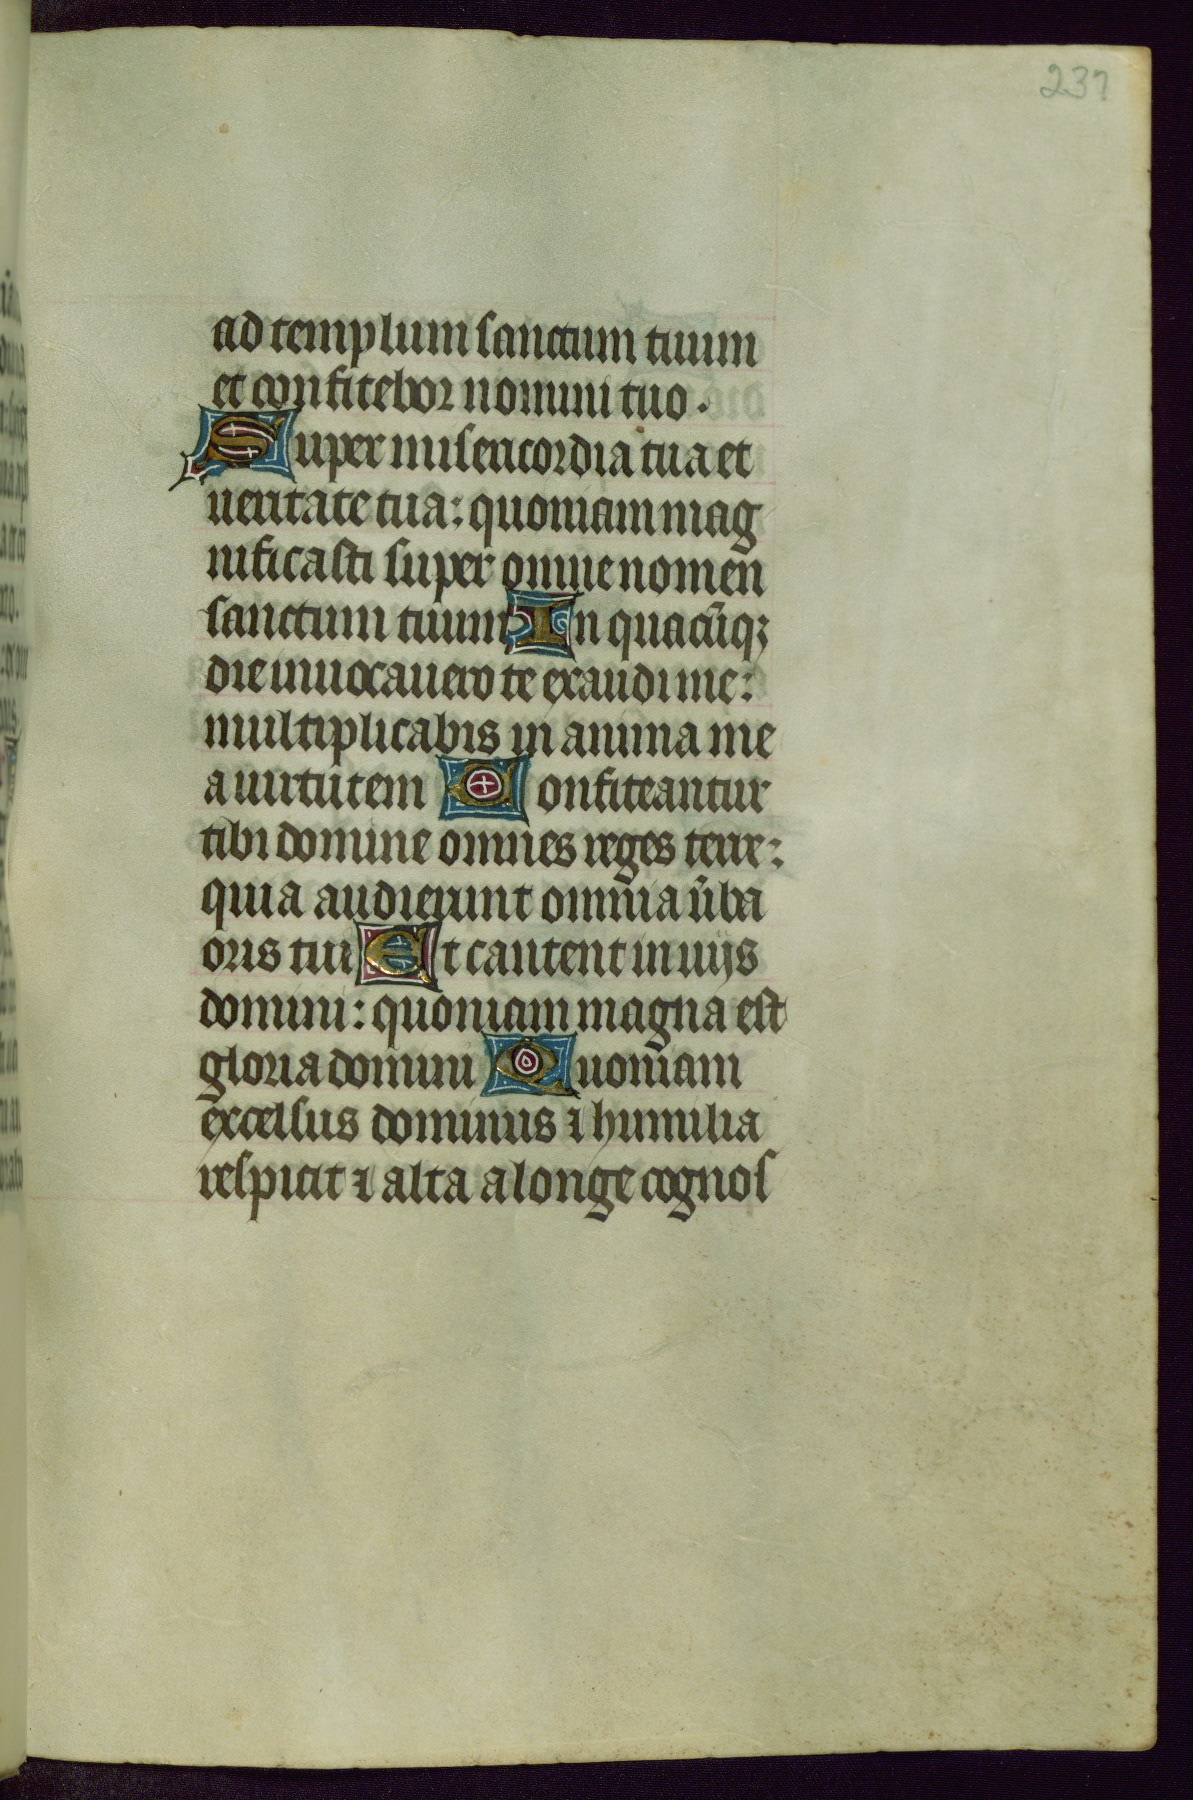 237
ad templum sanctum tuum
et confitebor nomini tuo.
Super misericordia tua et
ueritate tua: quoniam mag
nificasti super omne nomen
sanctum tuum In quacūqꝫ
die inuocauero te exaudi me:
multiplicabis in anima me
a uirtutem Confiteantur
tibi domine omnes reges terre:
quia audierunt omnia ūba
oris tui Et cantent in uijs
domini: quoniam magna est
gloria domini Quoniam
excelsus dominus ⁊ humilia
respicit ⁊ alta a longe cognos